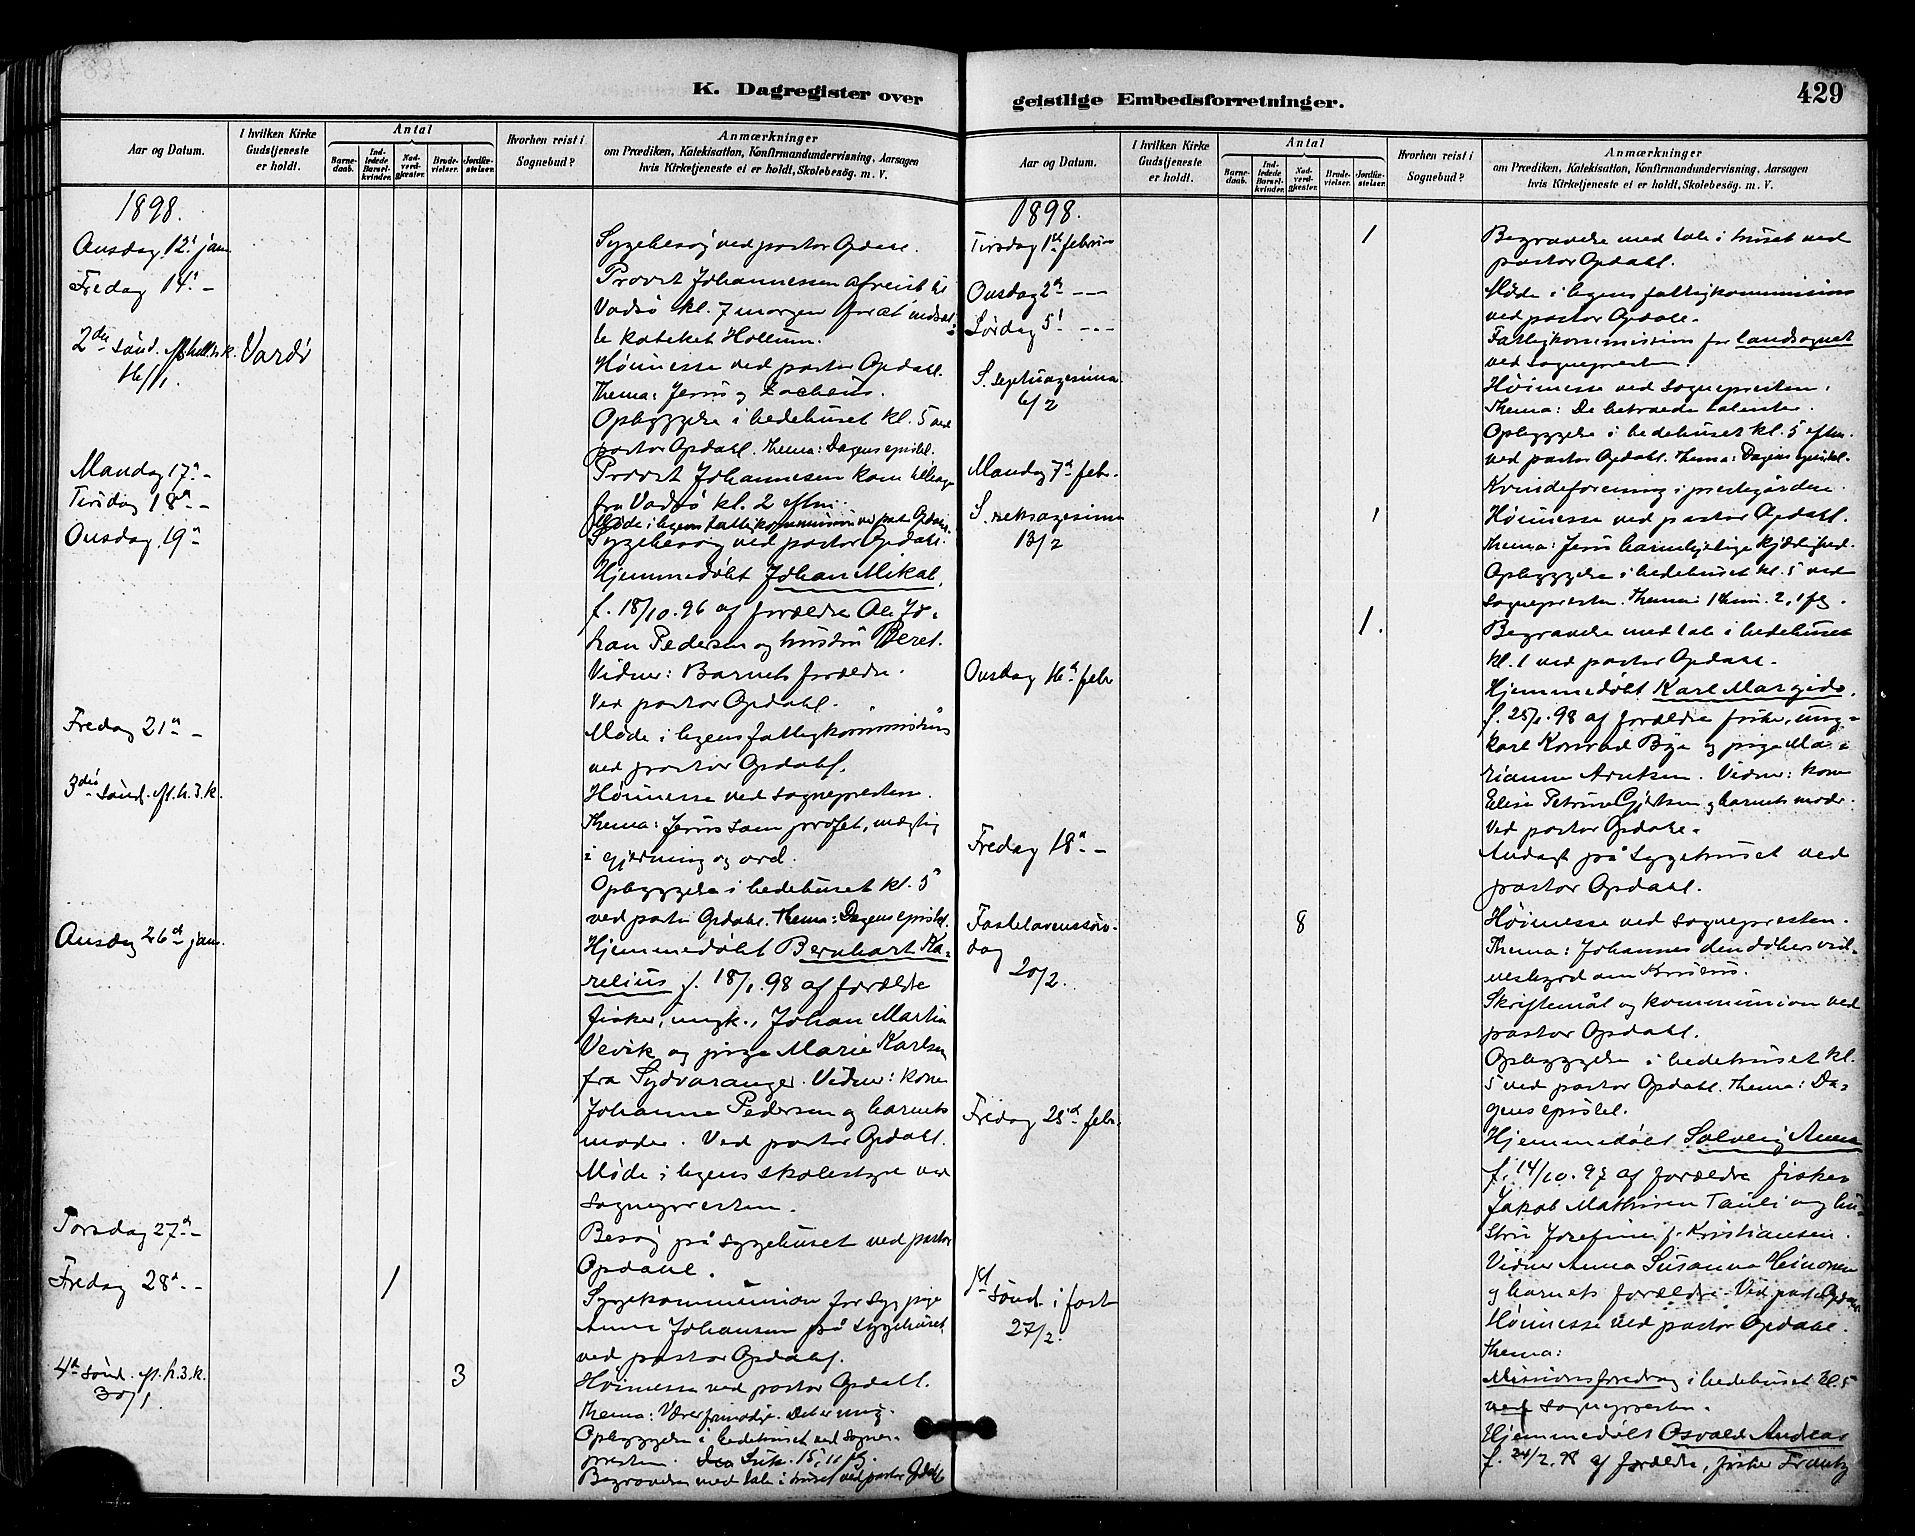 429
K. Dagregister over
geistlige Embedsforretninger.
Aar og Datum.
I hvilken Kirke Gudstjeneste er holdt.
Antal
Barnedaab.
Indledede Barselkvinder.
Nadverdgjester.
Brudevielser.
Jordfæstelser.
Hvorhen reist i Sognebud?
Anmærkninger
om Prædiken, Katekisation, Konfirmandundervisning, Aarsagen
hvis Kirketjeneste ei er holdt, Skolebesøg. m. V.
1898.
Onsdag 12t jan
Sygebesøg ved pastor Opdahl.
Fredag 14t -
Provst Johannessen afreist til
Vadsø kl. 7 morgen for at indsæt-
te kateket Hollum.
2den sønd. eft. hell.3.k. Vardø
16/1.
Høimesse ved pastor Opdahl.
Thema: Jesus og Zachæus.
Opbyggelse i bedehuset kl. 5 ved
pastor Opdahl. Thema: Dagens epistel.
Mandag 17d -
Provst Johannessen kom tilbage
fra Vadsø kl. 2 eftm.
Tirsdag 18de -
Møde i byens fattigkommission ved pastor Opdahl.
Onsdag 19d
Sygebesøg ved pastor Opdahl.
Hjemmedøbt Johan Mikal,
f. 18/10.96 af forældre Ole Jo-
han Pedersen og hustru Beret.
Vidner: Barnets forældre.
Ved pastor Opdahl.
Fredag 21d -
Møde i byens fattigkommission
ved pastor Opdahl.
3die sønd. eft. h.3.k.
Høimesse ved sognepresten.
Thema: Jesus som profet, mægtig
i gjerning og ord.
Opbyggelse i bedehuset kl. 5
ved pastor Opdahl. Thema: Dagens epistel.
Onsdag 26d jan.
Hjemmedøbt Bernhart Ka-
relius f. 18/1.98 af forældre
fisker, ungk., Johan Martin
Vevik og pige Marie Karlsen
fra Sydvaranger. Vidner: kone
Johanne Pedersen og barnets
moder. Ved pastor Opdahl.
Møde i byens skolestyre ved
sognepresten.
Torsdag 27d -
Besøg på sygehuset ved pastor
Opdahl.
Fredag 28d - 1
Sygekommunion for syg pige
Anna Johansen på sygehuset
ved pastor Opdahl.
4d sønd. eft. h.3.k. 3
30/1.
Høimesse ved pastor Opdahl.
Thema: Vær frimodige. Det er mig.
Opbyggelse i bedehuset ved sogne-
presten. Luk. 15, 11 fg.
Begravelse med tale i huset ved pastor Opdahl
Aar og Datum.
I hvilken Kirke Gudstjeneste er holdt.
Antal
Barnedaab.
Indledede Barselkvinder.
Nadverdgjester.
Brudevielser.
Jordfæstelser.
Hvorhen reist i Sognebud?
Anmærkninger
om Prædiken, Katekisation, Konfirmandundervisning, Aarsagen
hvis Kirketjeneste ei er holdt, Skolebesög. m. V.
1898.
Tirsdag 1st februar 1
Begravelse med tale i huset ved
pastor Opdahl.
Onsdag 2d -
Møde i byens fattigkommission
ved pastor Opdahl.
Lørdag 5t -
Fattigkommission for landsognet
ved sognepresten.
S. septuagesima
6/2
Høimesse ved sognepresten.
Thema: De betroede talenter.
Opbyggelse i bedehuset kl. 5 eftm.
ved pastor Opdahl. Thema: Dagens epistel.
Mandag 7d febr.
Kvindeforening i prestegården.
S. seksagesima 1
13/2
Høimesse ved pastor Opdahl.
Thema: Jesu barmhjertige kjærlighed.
Opbyggelse i bedehuset kl. 5 ved
sognepresten. Thema: 1 Tim. 2, 1 fg.
1.
Begravelse med tale i bedehuset
kl. 1 ved pastor Opdahl.
Onsdag 16d febr
Hjemmedøbt Karl Margido,
f. 25/1.98 af forældre fisker, ung-
karl Konrad Bye og pige Ma-
rianne Arntsen. Vidner: kone
Elise Petrine Gjertsen og barnets moder.
Ved pastor Opdahl.
Fredag 18d -
Andagt på sygehuset ved
pastor Opdahl.
Fastelavenssøn- 8
dag
20/2.
Høimesse ved sognepresten.
Thema: Johannes den døbers vid-
nesbyrd om Kristus.
Skriftemål og kommunion ved
pastor Opdahl.
Opbyggelse i bedehuset kl.
5 ved pastor Opdahl. Thema: Da-
gens epistel.
Fredag 25d febr.
Hjemmedøbt Solveig Anna
f. 14/10.97 af forældre fisker
Jakob Mathisen Tauli og hu-
stru Josefine f. Kristiansen.
Vidner Anna Susanna Heinonen
og barnets forældre. Ved pastor Opdahl.
1st sønd. i fast
27/2.
Høimesse ved pastor Opdahl.
Thema:
Missionsforedrag i bedehuset kl. 5
ved sognepresten.
Hjemmedøbt Osvald Andreas
f. 24/2.98 af forældre, fisker Frantz